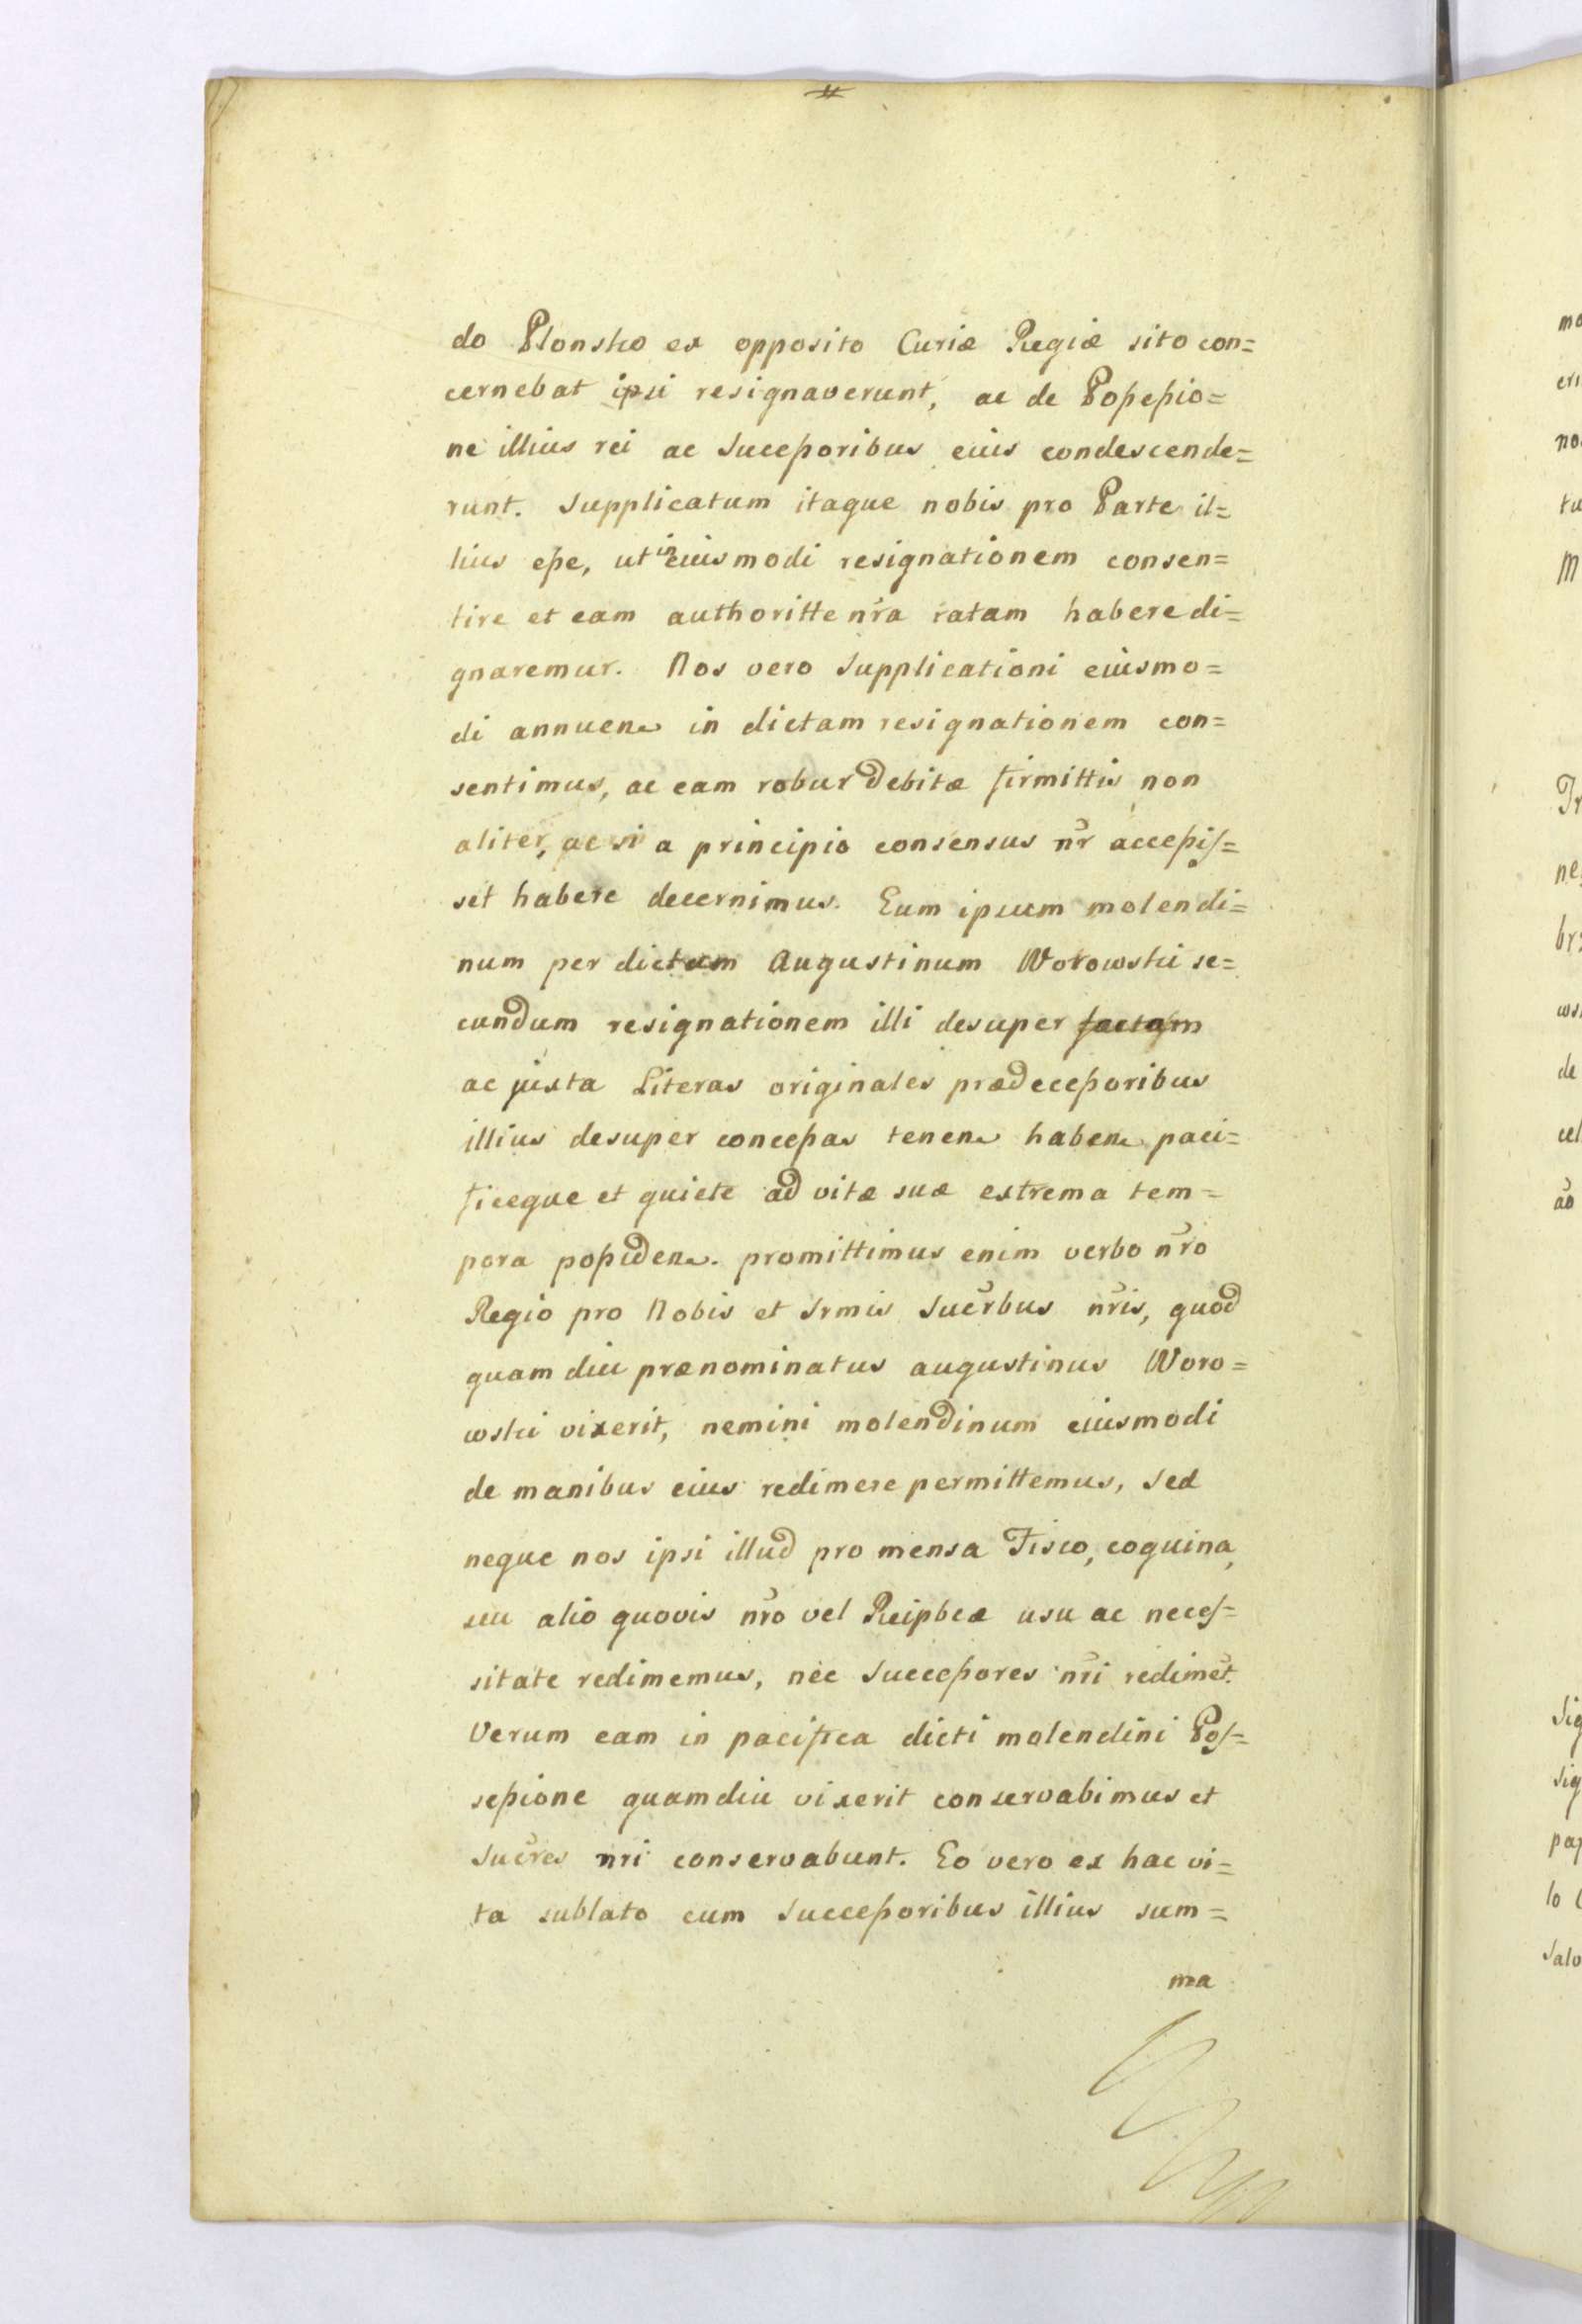 do Plonsko ex opposito Curiæ Regiæ sito con=
cernebat ipsi resignaverunt, ac de Poßeßio=
ne illius rei ac Succeßoribus eius condescende=
runt. Supplicatum itaque nobis pro Parte il=
lius eße, ut in eiusmodi resignationem consen=
tire et eam authoritte nr̃a ratam habere di=
gnaremur. Nos vero Supplicationi eiusmo=
di annuen. in dictam resignationem con=
sentimus, ac eam robur debitæ firmittis non
aliter, ac si a principio consensus nr̃ acceßis=
set habere decernimus. Eum ipsum molendi=
num per dictum Augustinum Worowski se=
cundum resignationem illi desuper factam
ac juxta Literas originales prædeceßoribus
illius desuper conceßas tenen. haben. paci=
ficeque et quiete ad vitæ suæ extrema tem=
pora poßiden. promittimus enim verbo nr̃o
Regio pro Nobis et Srmis Sucr̃bus nr̃is, quod
quam diu prænominatus augustinus Woro=
wski vixerit, nemini molendinum eiusmodi
de manibus eius redimere permittemus, Sed
neque nos ipsi illud pro mensa Fisco, coquina,
seu alio quovis nr̃o vel Reipbcæ usu ac neces=
sitate redimemus, nec Succeßores nr̃i redimẽt.
Verum eam in pacifica dicti molendini Pos=
seßione quamdiu vixerit conservabimus et
Sucr̃es nri conservabunt. Eo vero ex hac vi=
ta sublato cum Succeßoribus illius sum=
ma